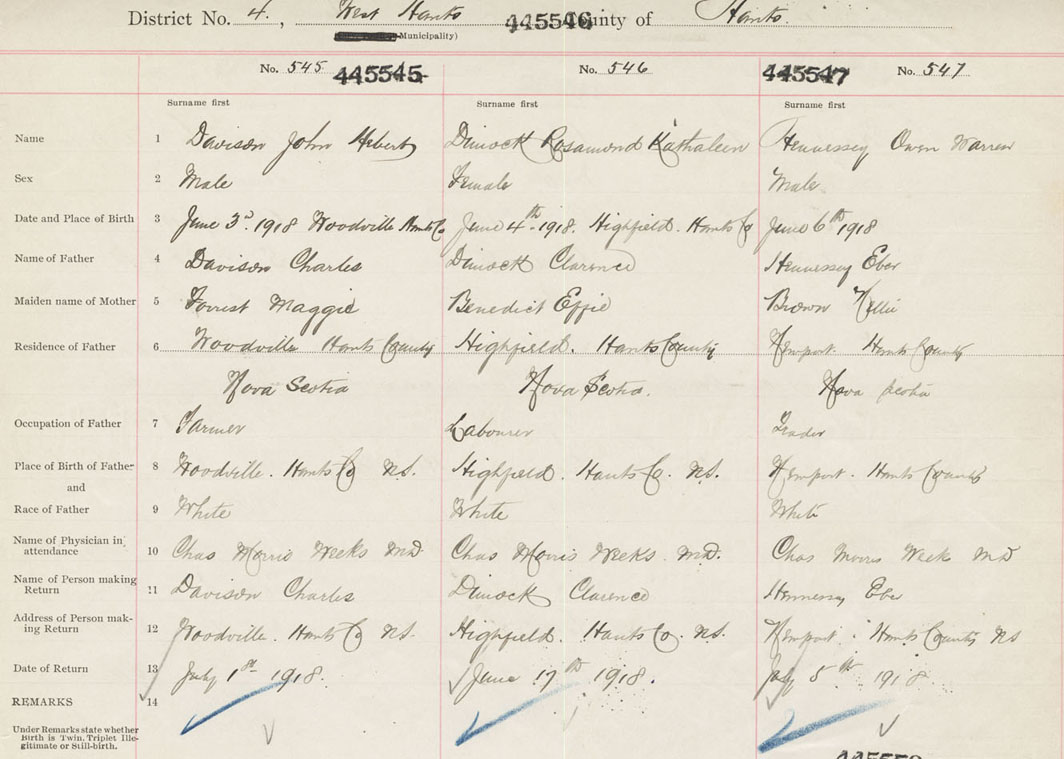 District No. 4., West Hants 445546 County of Hants.
Municipality)
No. 545 445545 No. 546 445547 No. 547
Surname first Surname first Surname first
Name 1 Davison John Hebert Dimock Rosamond Kathaleen Hennessey Owen Warren
Sex 2 Male Female Male.
Date and Place of Birth 3 June 3d. 1918 Woodville Hants Co June 4th. 1918. Highfield. Hants Co June 6th 1918
Name of Father 4 Davison Charles Dimock Clarence Hennessey Eber
Maiden name of Mother 5 Forrest Maggie Benedict Effie Brown Nellie
Residence of Father 6 Woodville Hants County Highfield. Hants County Newport. Hants County
Nova Scotia Nova Scotia. Nova Scotia
Occupation of Father 7 Farmer Labourer Trader
Place of Birth of Father 8 Woodville. Hants Co N.S. Highfield. Hants Co. N.S. Newport. Hants County
and
Race of Father 9 White White White
Name of Physician in attendance 10 Chas Morris Weeks M.D. Chas Morris Weeks. M.D. Chas Morris Week M D
Name of Person making Return 11 Davison Charles Dimock Clarence Hennessy Eber
Address of Person making Return 12 Woodville. Hants Co N.S. Highfield. Hants Co. N.S. Newport. Hants County NS
Date of Return 13 July 1st 1918. June 17th 1918. July 5th 1918
REMARKS 14
Under Remarks state whether
Birth is Twin, Triplet Ille-
gitimate or Still-birth.